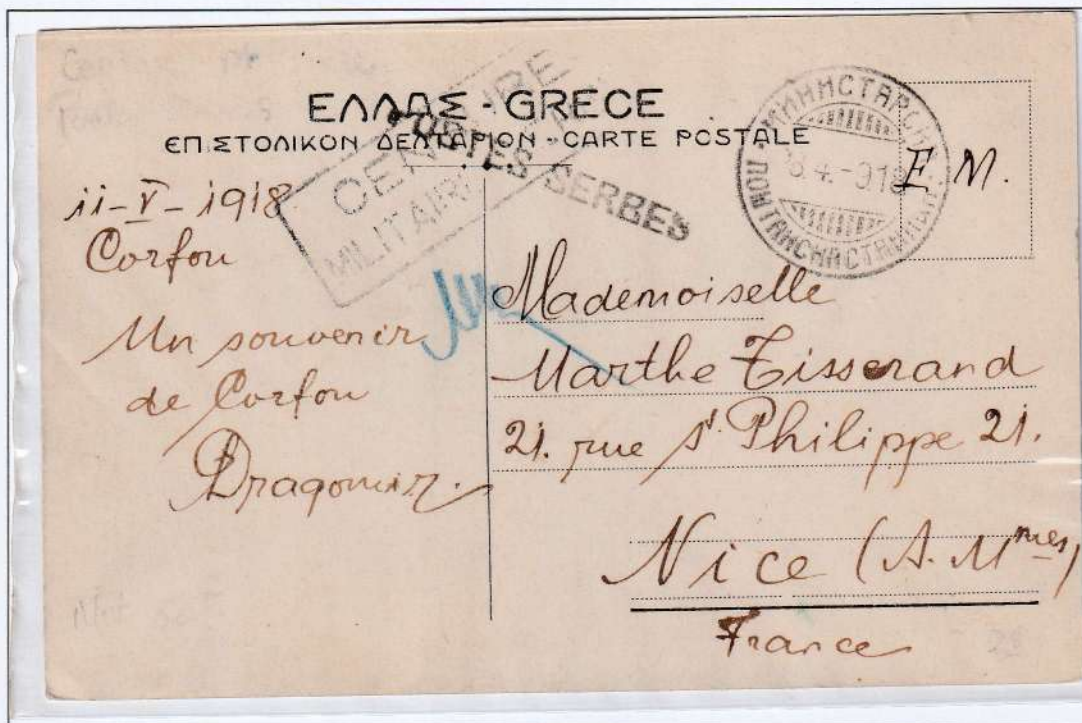 ΕΛΛΑΣ - GRECE
ΕΠΙΣΤΟΛΙΚΟΝ ΔΕΛΤΑΡΙΟΝ - CARTE POSTALE
CENSURE
MILITAIRE
POSTES SERBES
28.4.-918
F. M.
11-V-1918
Corfou
Un souvenir
de Corfou
Dragomir.
Mademoiselle
Marthe Tisserand
21. rue St. Philippe 21.
Nice (A. Mmes)
France